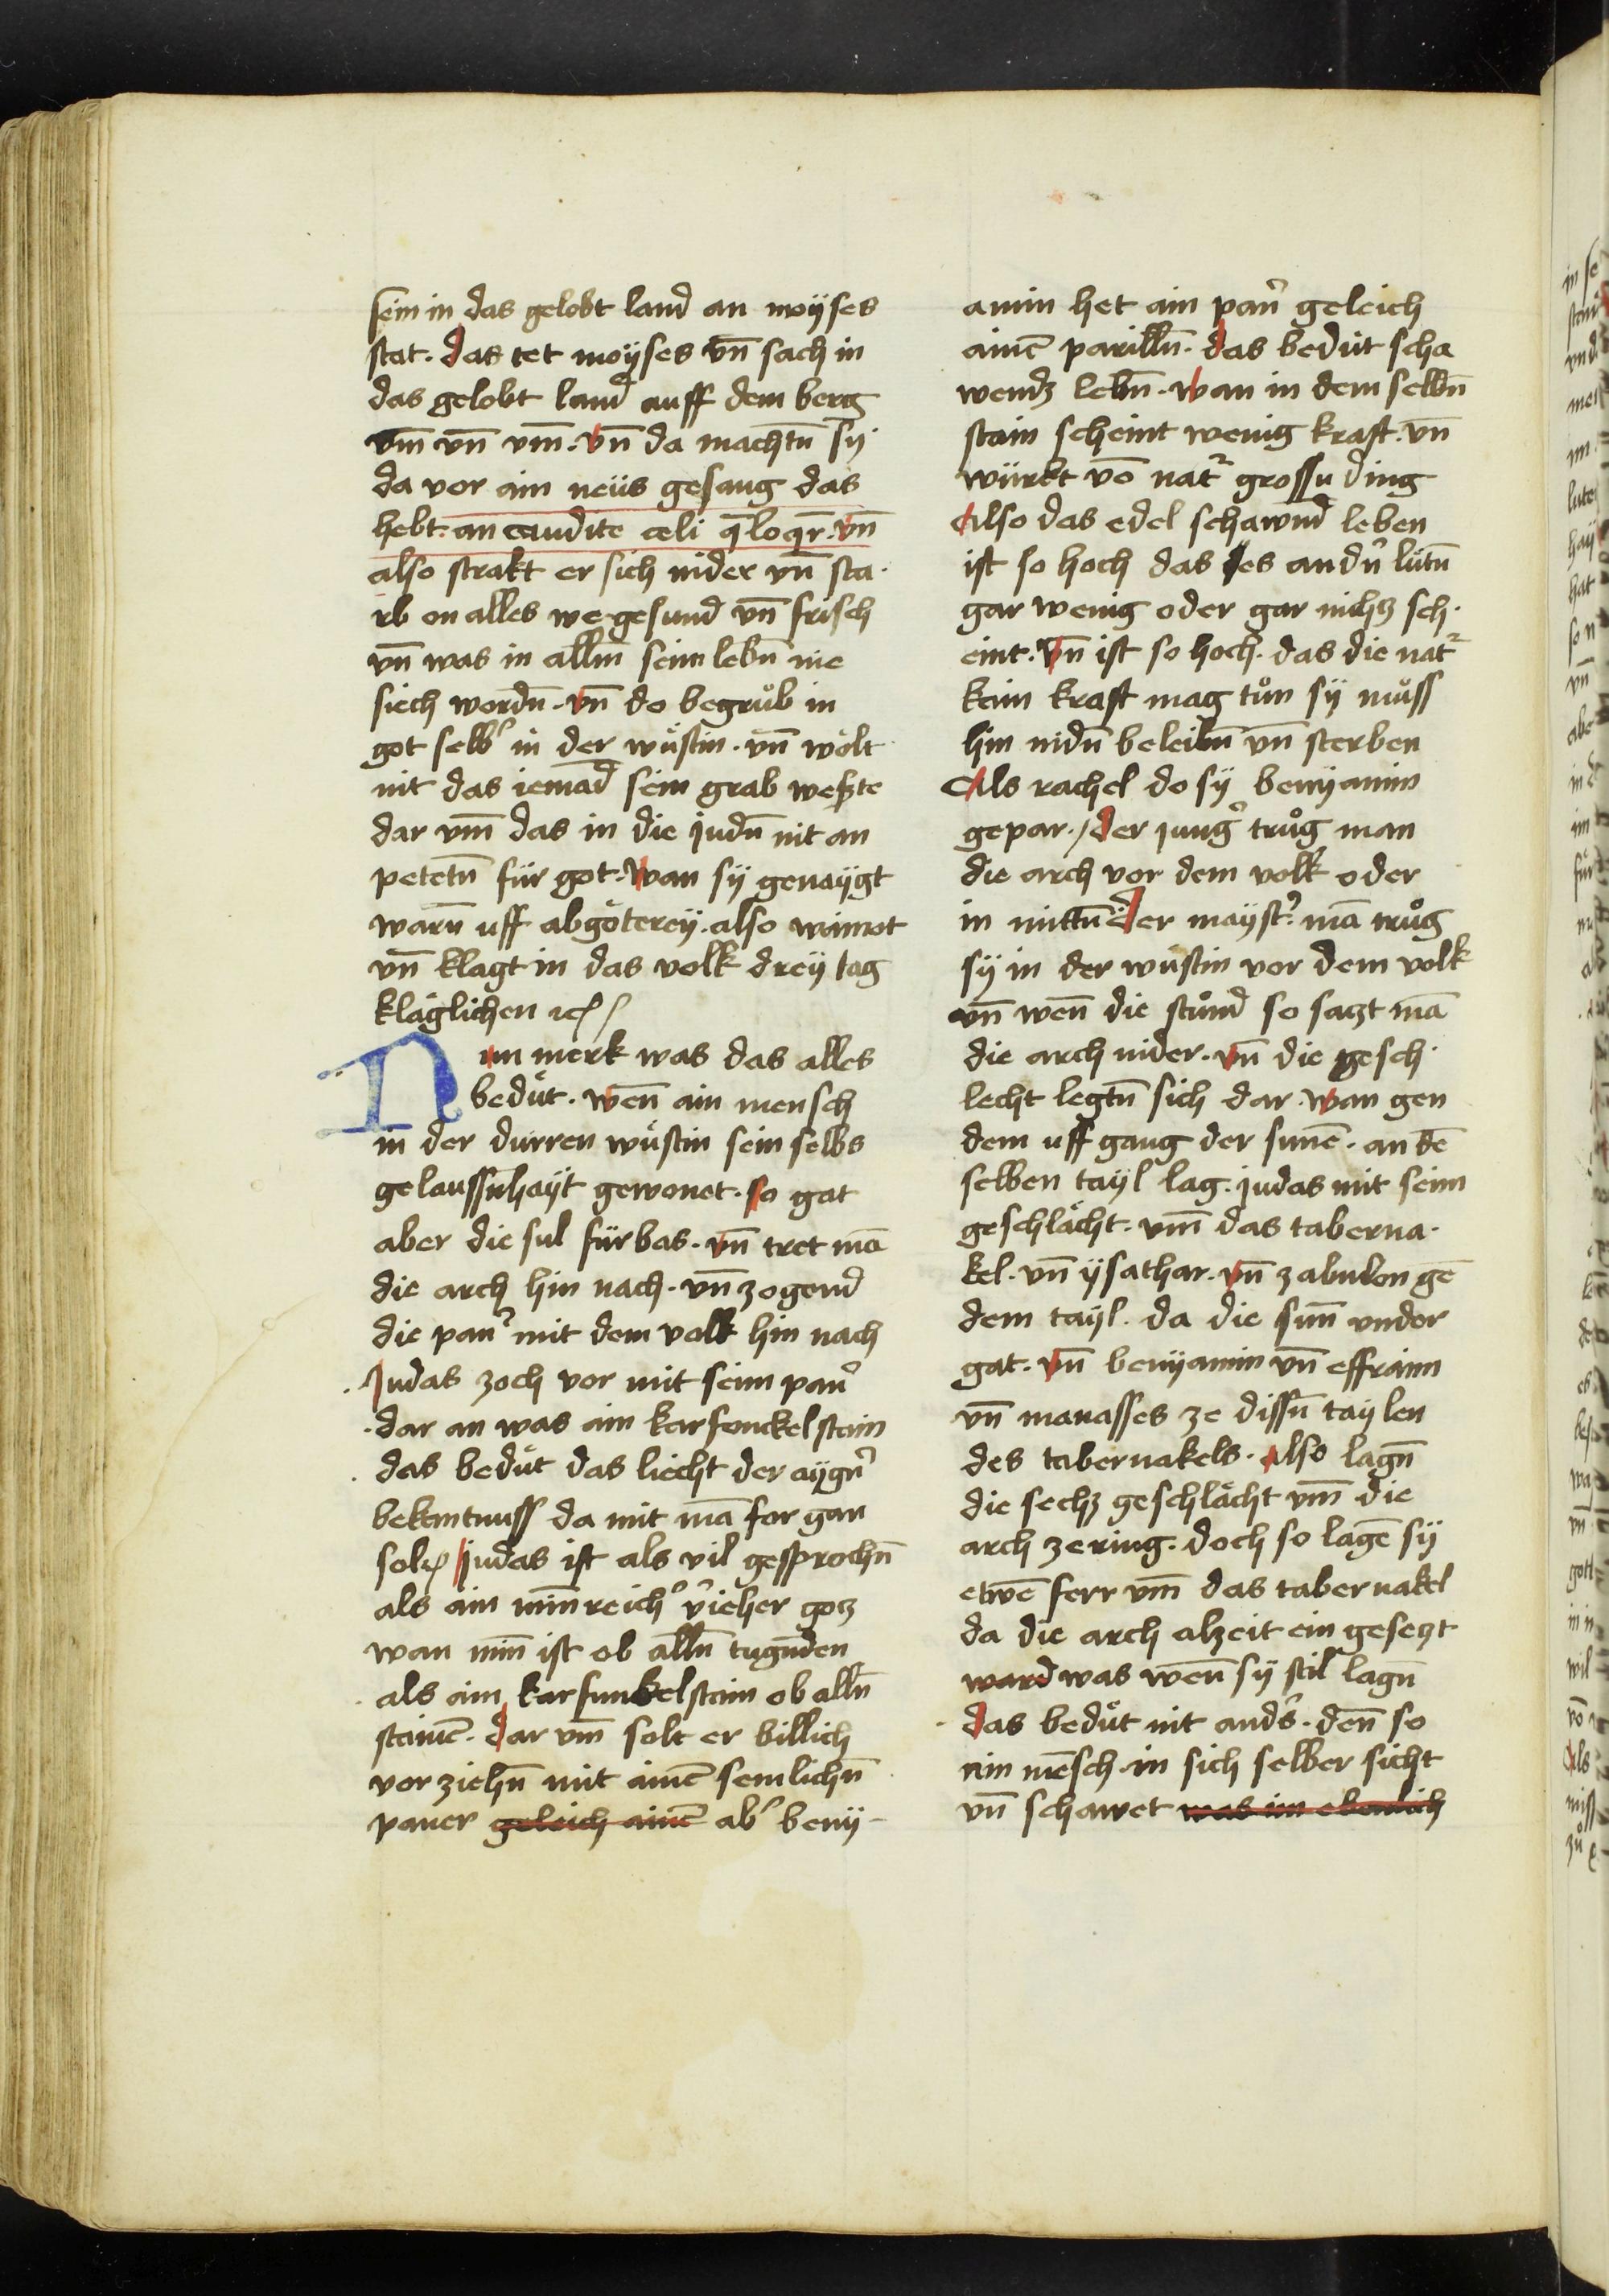 sein in das gelobt land an moÿses
stat · das tet moÿses vn̄ sach in
das gelobt land auff dem berg
vm̄ vn̄ vm̄ · vn̄ da machtn̄ sÿ
da vor ain neüs gesang das
hebt · an eaudite celi q̄ loqr̄ · vn̄
also strakt er sich nider vn̄ sta·
rb on alles we gesund vn̄ frisch
vn̄ was in allm̄ seim lebn̄ nie
siech wordn̄ · vn̄ do begrůb in
got selb' in der wüstin · vn̄ wolt
nit das iemād sein grab weßte
dar vm̄ das in die judn̄ nit an
petetn̄ für got · wan sÿ genaÿgt
warn̄ uff abgöterey · also wainot
vn̄ klagt in das volk dreÿ tag
kläglichen ⁊c
Nun merk was das alles
bedüt · wen̄ ain mensch
in der dürren wüstin sein selbs
gelaussn̄haÿt gewonet · so gat
aber die sul fürbas · vn̄ tret mā
die arch hin nach · vn̄ zogend
die pan' mit dem volk hin nach
Judas zoch vor mit seim pan'
dar an was ain karfonckelstain
das bedüt das liecht der aÿgn'
bekantnuss da mit mā for gan
sol Judas ist als vil gesprochn̄
als ain min̄reich' v'ieher gotz
wan min̄ ist ob alln̄ tugn̄den
als ain karfunkelstain ob alln̄
stainē · dar vm̄ solt er billich
vor ziehn̄ mit ainē semlichn̄
paner geleich ainē ab' benÿ-
amin het ain pan' geleich
ainē parilln̄ · das bedüt scha
wendz lebn̄ · wan in dem selbn̄
stain scheint wenig kraft · vn̄
würkt vō nat' grossu ding
Also das edel schawnd leben
ist so hoch das es andn' lütn̄
gar wenig oder gar nichz sch·
eint · vn̄ ist so hoch · das die nat'
kain kraft mag tůn sÿ můss
hin nidn̄ beleibn̄ vn̄ sterben
Als rachel do sÿ benÿamin
gepar · / der jung' trůg man
die arch vor dem volk oder
in mittn̄ · der maÿst' · mā trůg
sÿ in der wüstin vor dem volk
vn̄ wen̄ die stůnd so sazt mā
die arch nider · vn̄ die gesch·
lecht legtn̄ sich dar · wan gen
dem uff gang der sunē · an dē
selben taÿl lag · judas mit seim
geschlächt · vm̄ das taberna·
kel · vn̄ ÿsathar · vn̄ zabulon gē
dem taÿl · da die sun̄ vnder
gat · vn̄ benÿamin vn̄ effraim
vn̄ manasses ze dissn̄ taÿlen
des tabernakels · Also lagn̄
die sechz geschlächt vm̄ die
arch zering · doch so lagē sÿ
etwē ferr vm̄ das tabernakel
da die arch alzeit ein gesetzt
ward was wen̄ sÿ stil lagn̄
das bedüt nit and's · den̄ so
ain mēsch in sich selber sicht
vn̄ schawet was im ebenlich